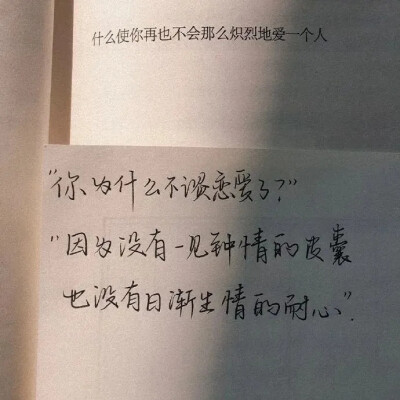 什么使你再也不会那么炽烈地爱一个人
“你为什么不谈恋爱了?”
“因为没有一见钟情的皮囊
也没有日渐生情的耐心”.